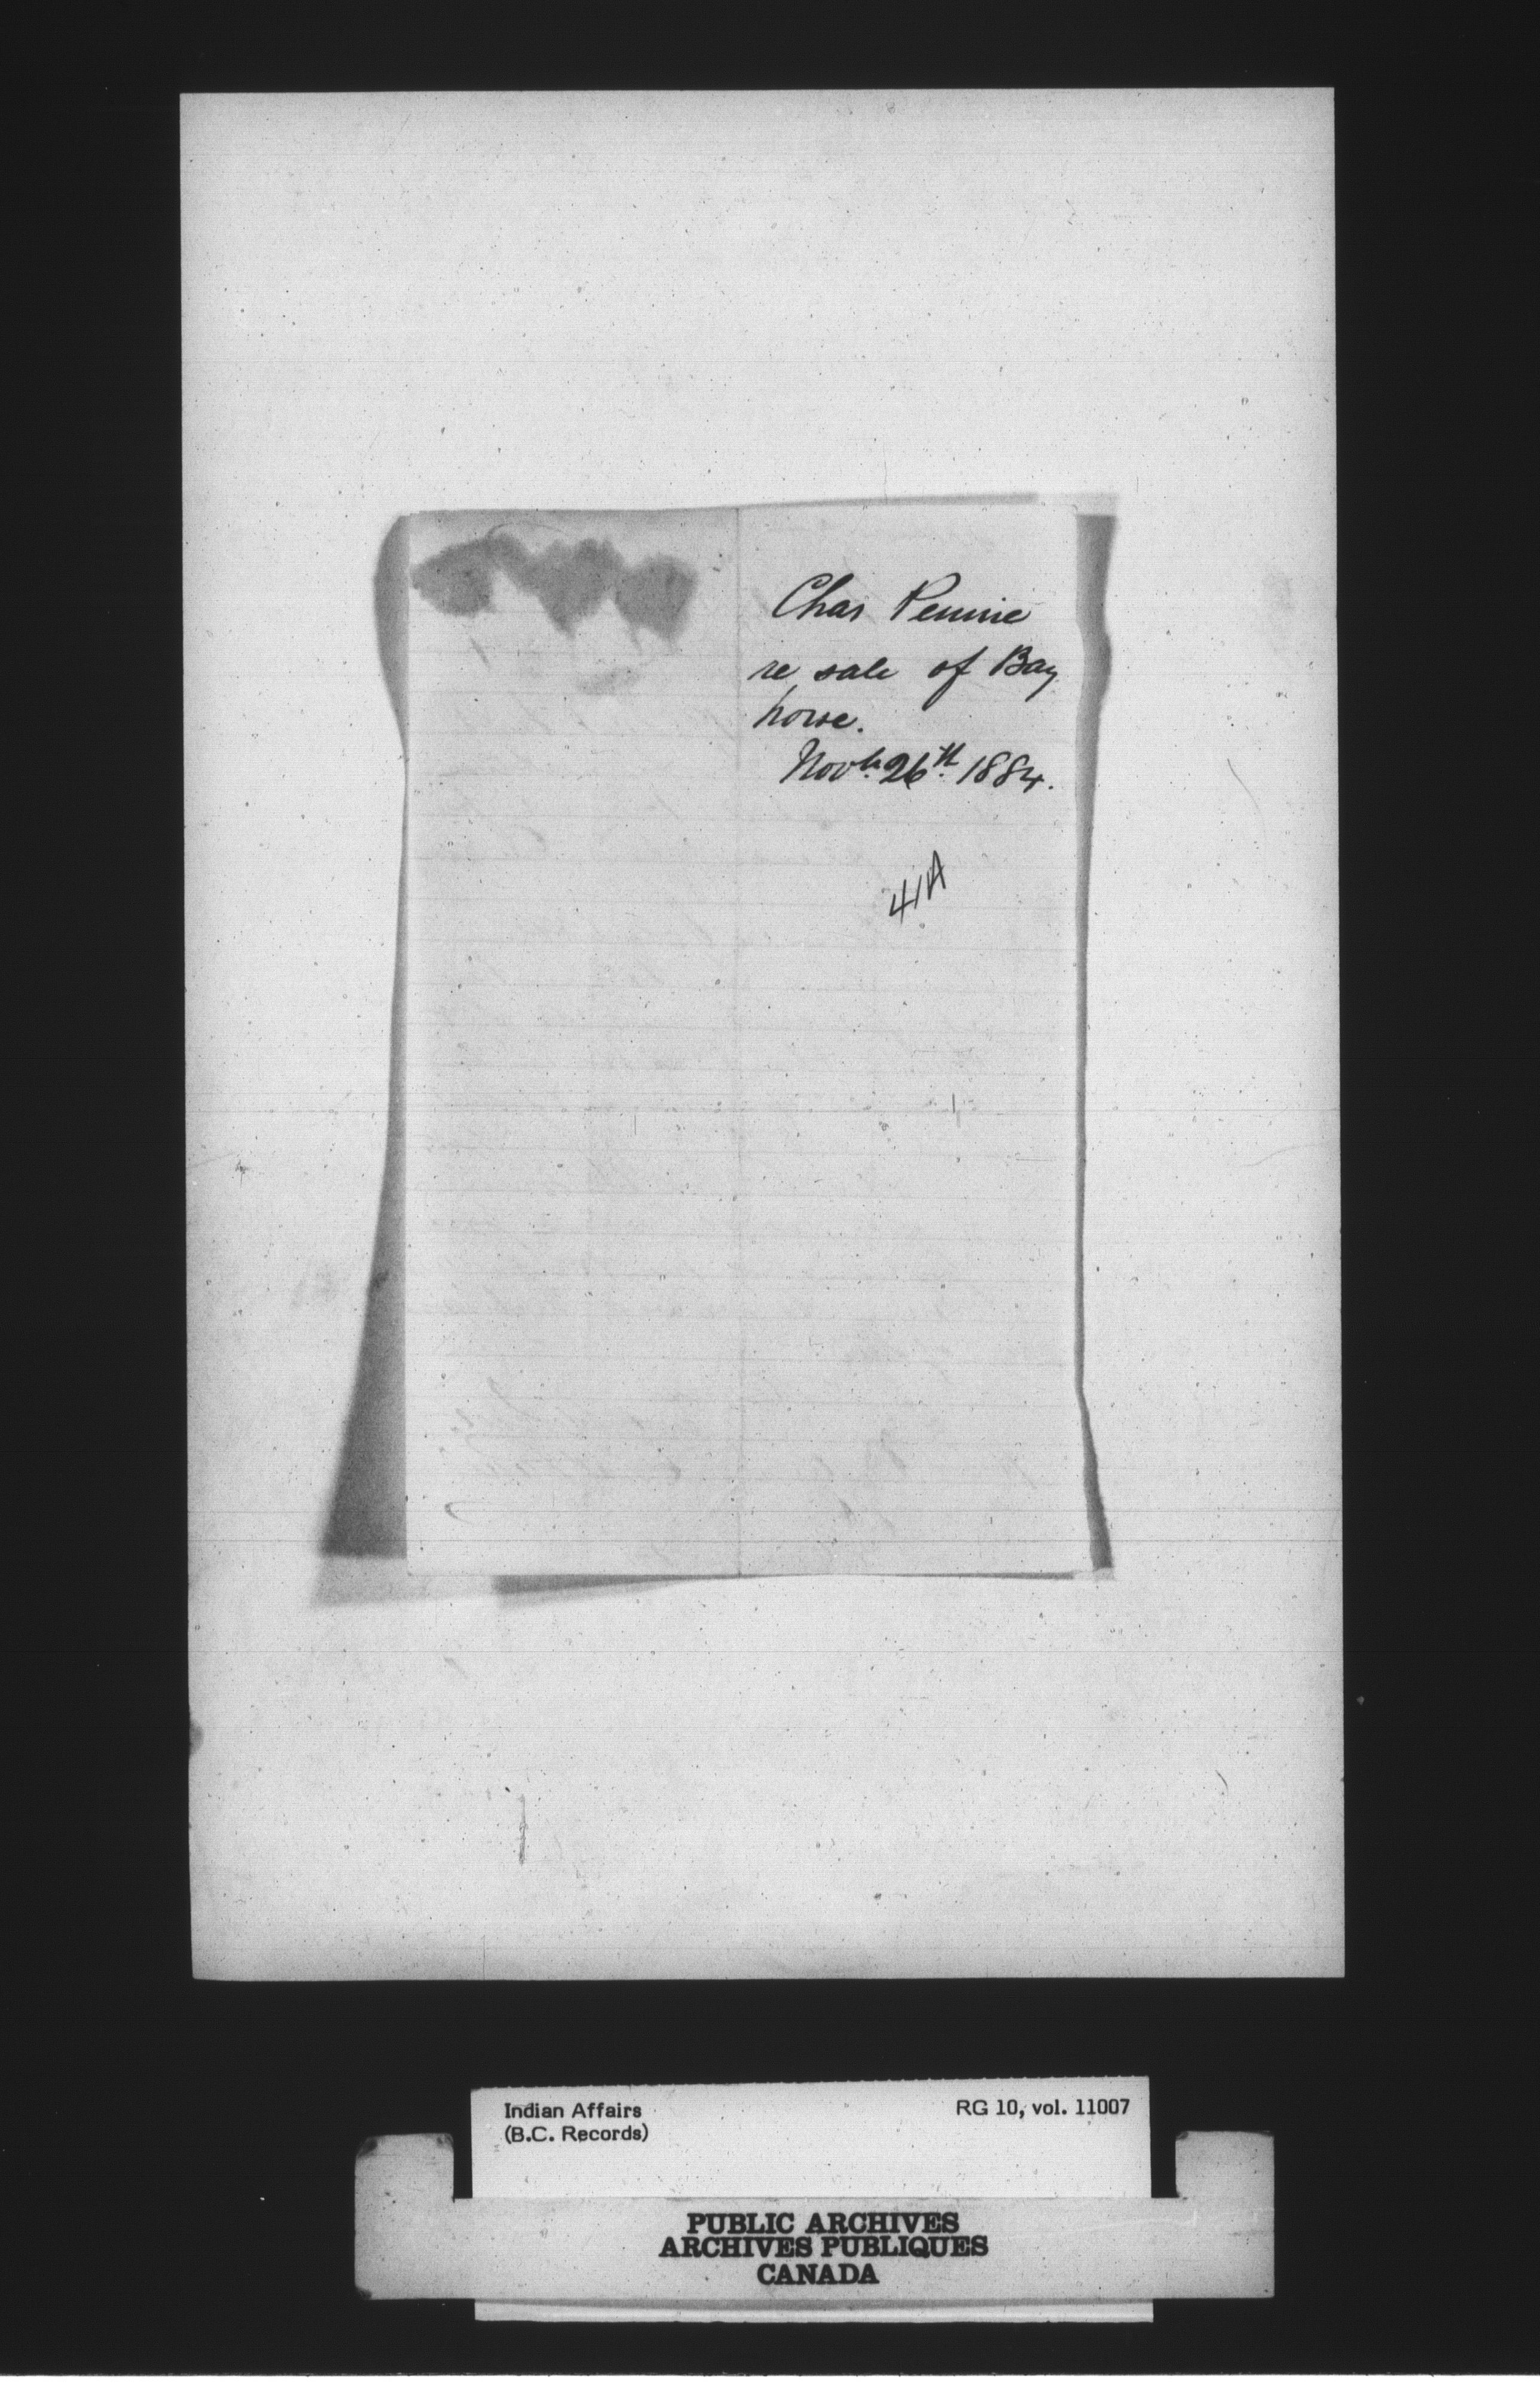 Chas Pennie
re sale of Bay
horse.
Novbr 26th 1884.
41A
Indian Affairs
(B.C. Records)
RG 10, vol. 11007
PUBLIC ARCHIVES
ARCHIVES PUBLIQUES
CANADA